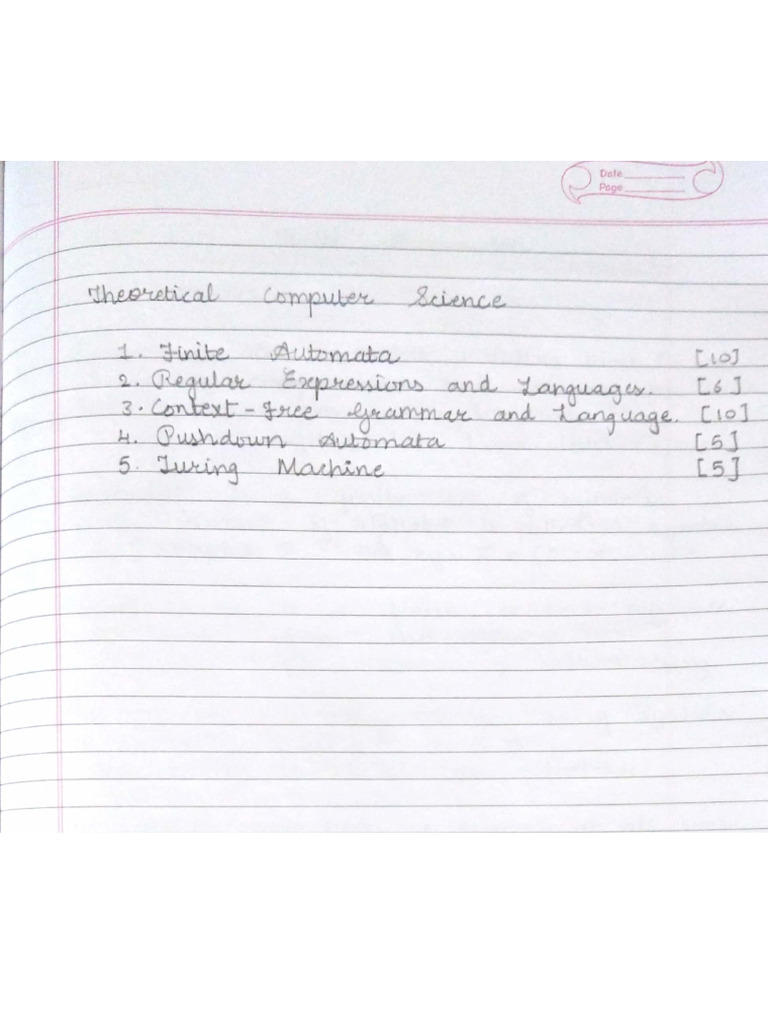 Date
Page
Theoretical Computer Science
1. Finite Automata [10]
2. Regular Expressions and Languages. [6]
3. Context-Free Grammar and Language. [10]
4. Pushdown Automata [5]
5. Turing Machine [5]